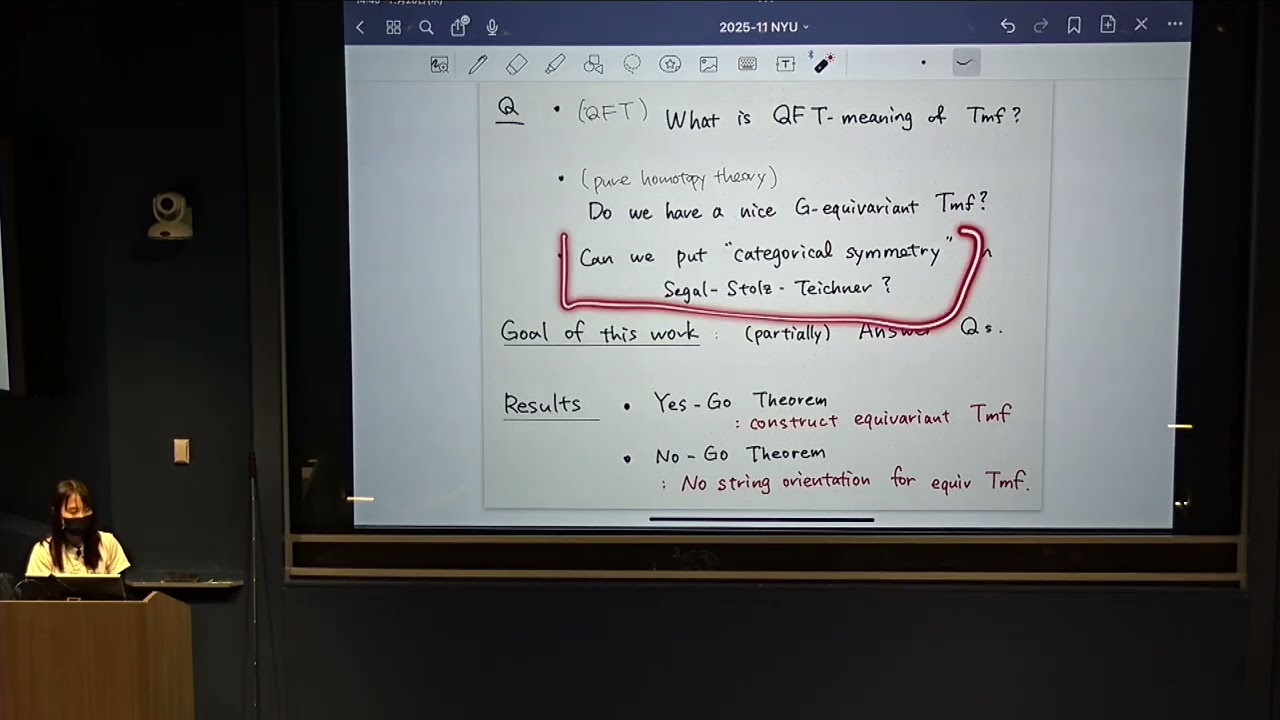 2025-11 NYU
Q • (QFT) What is QFT-meaning of Tmf?
• (pure homotopy theory)
Do we have a nice G-equivariant Tmf?
Can we put "categorical symmetry"
Segal-Stolz-Teichner?
Goal of this work: (partially) Answer Qs.
Results • Yes-Go Theorem
: construct equivariant Tmf
• No-Go Theorem
: No string orientation for equiv Tmf.